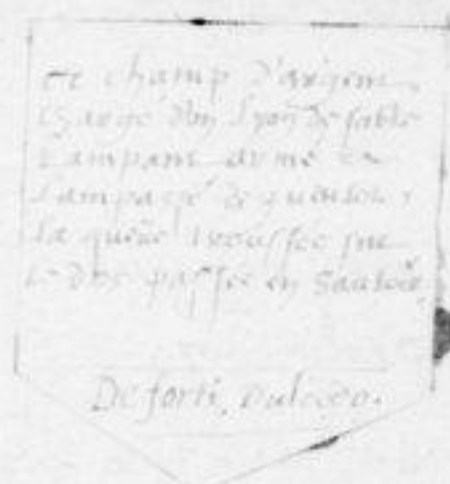 Le champ d'argent,
chargé d'un lyon de sable
rampant armé &
lampassé de gueules,
la queüe troussée sur
le dos passée en sautoir.
De forti, dulcedo.